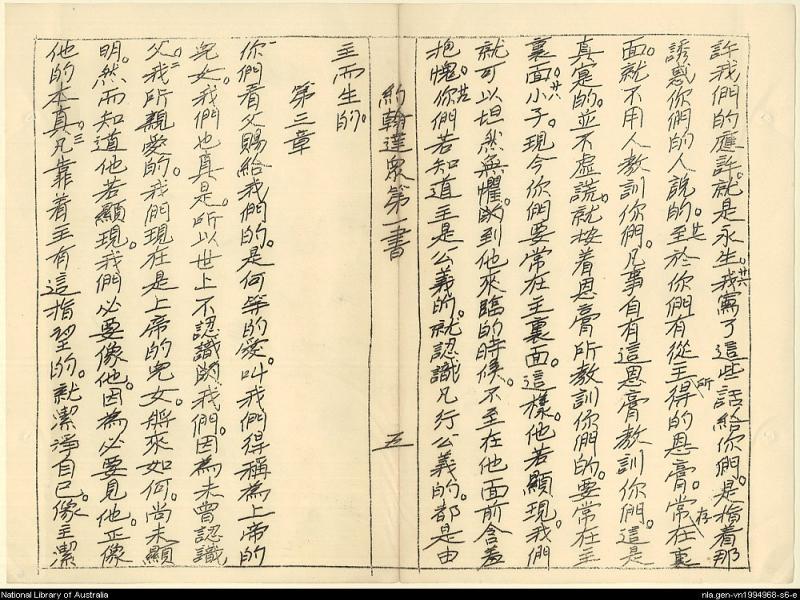 許我們的應許。就是永生。廿六我寫了這些話給你們。是指着那
誘惑你們的人說的。廿七至於你們有從主所得的恩膏。常存在裏
面。就不用人教訓你們。凡事自有這恩膏教訓你們。這是
真寔的。並不虛謊。就按着恩膏所教訓你們的。要常在主
裏面。廿八小子。現今你們要常在主裏面。這樣。他若顯現。我們
就可以坦然無懼。到他來臨的時候。不至在他面前含羞
抱愧。廿九你們若知道主是公義的。就認識凡行公義的。都是由
約翰達衆第一書 五
主而生的。
第三章
一你們看父賜給我們的。是何等的愛。叫我們得稱為上帝的
兒女。我們也真是。所以世上不認識我們。因為未曾認識
父。二我所親愛的。我們現在是上帝的兒女。將來如何。尚未顯
明。然而知道他若顯現。我們必要像他。因為必要見他。正像
他的本真。三凡靠着主有這指望的。就潔淨自己。像主潔
National Library of Australia
nla.gen-vn1994968-s6-e